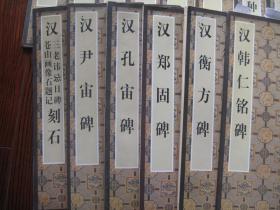 汉三老讳忌日碑苍山画像石题记刻石
汉尹宙碑
汉孔宙碑
汉郑固碑
汉衡方碑
汉韩仁铭碑